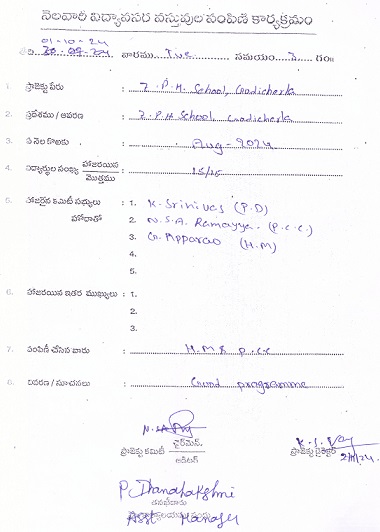 నెలవారీ విద్యావసర వస్తువుల పంపిణి కార్యక్రమం
01-10-24
తేది 30-09-24 వారము Tue సమయం 3 గం॥
1. ప్రాజెక్టు పేరు : Z.P.H. School, Godicherla
2. ప్రదేశము / ఆవరణ : Z.P.H School, Godicherla
3. ఏ నెల కొఱకు : Aug-2024
4. విద్యార్థుల సంఖ్య హాజరయిన / మొత్తము : 15/15
5. హాజరైన కమిటీ సభ్యులు : 1. K. Srinivas (P.D)
హోదాతో 2. N.S.A. Ramayya. (P.C.C.)
3. G. Apparao (H.M)
4.
5.
6. హాజరయిన ఇతర ముఖ్యులు : 1.
2.
3.
7. పంపిణీ చేసిన వారు : H.M & P.C.C
8. వివరణ / సూచనలు : Good programme
ప్రాజెక్టు కమిటీ చైర్‌మెన్. / ఆడిటర్
ప్రాజెక్టు డైరెక్టర్
P. Dhanalakshmi
Asst. Manager